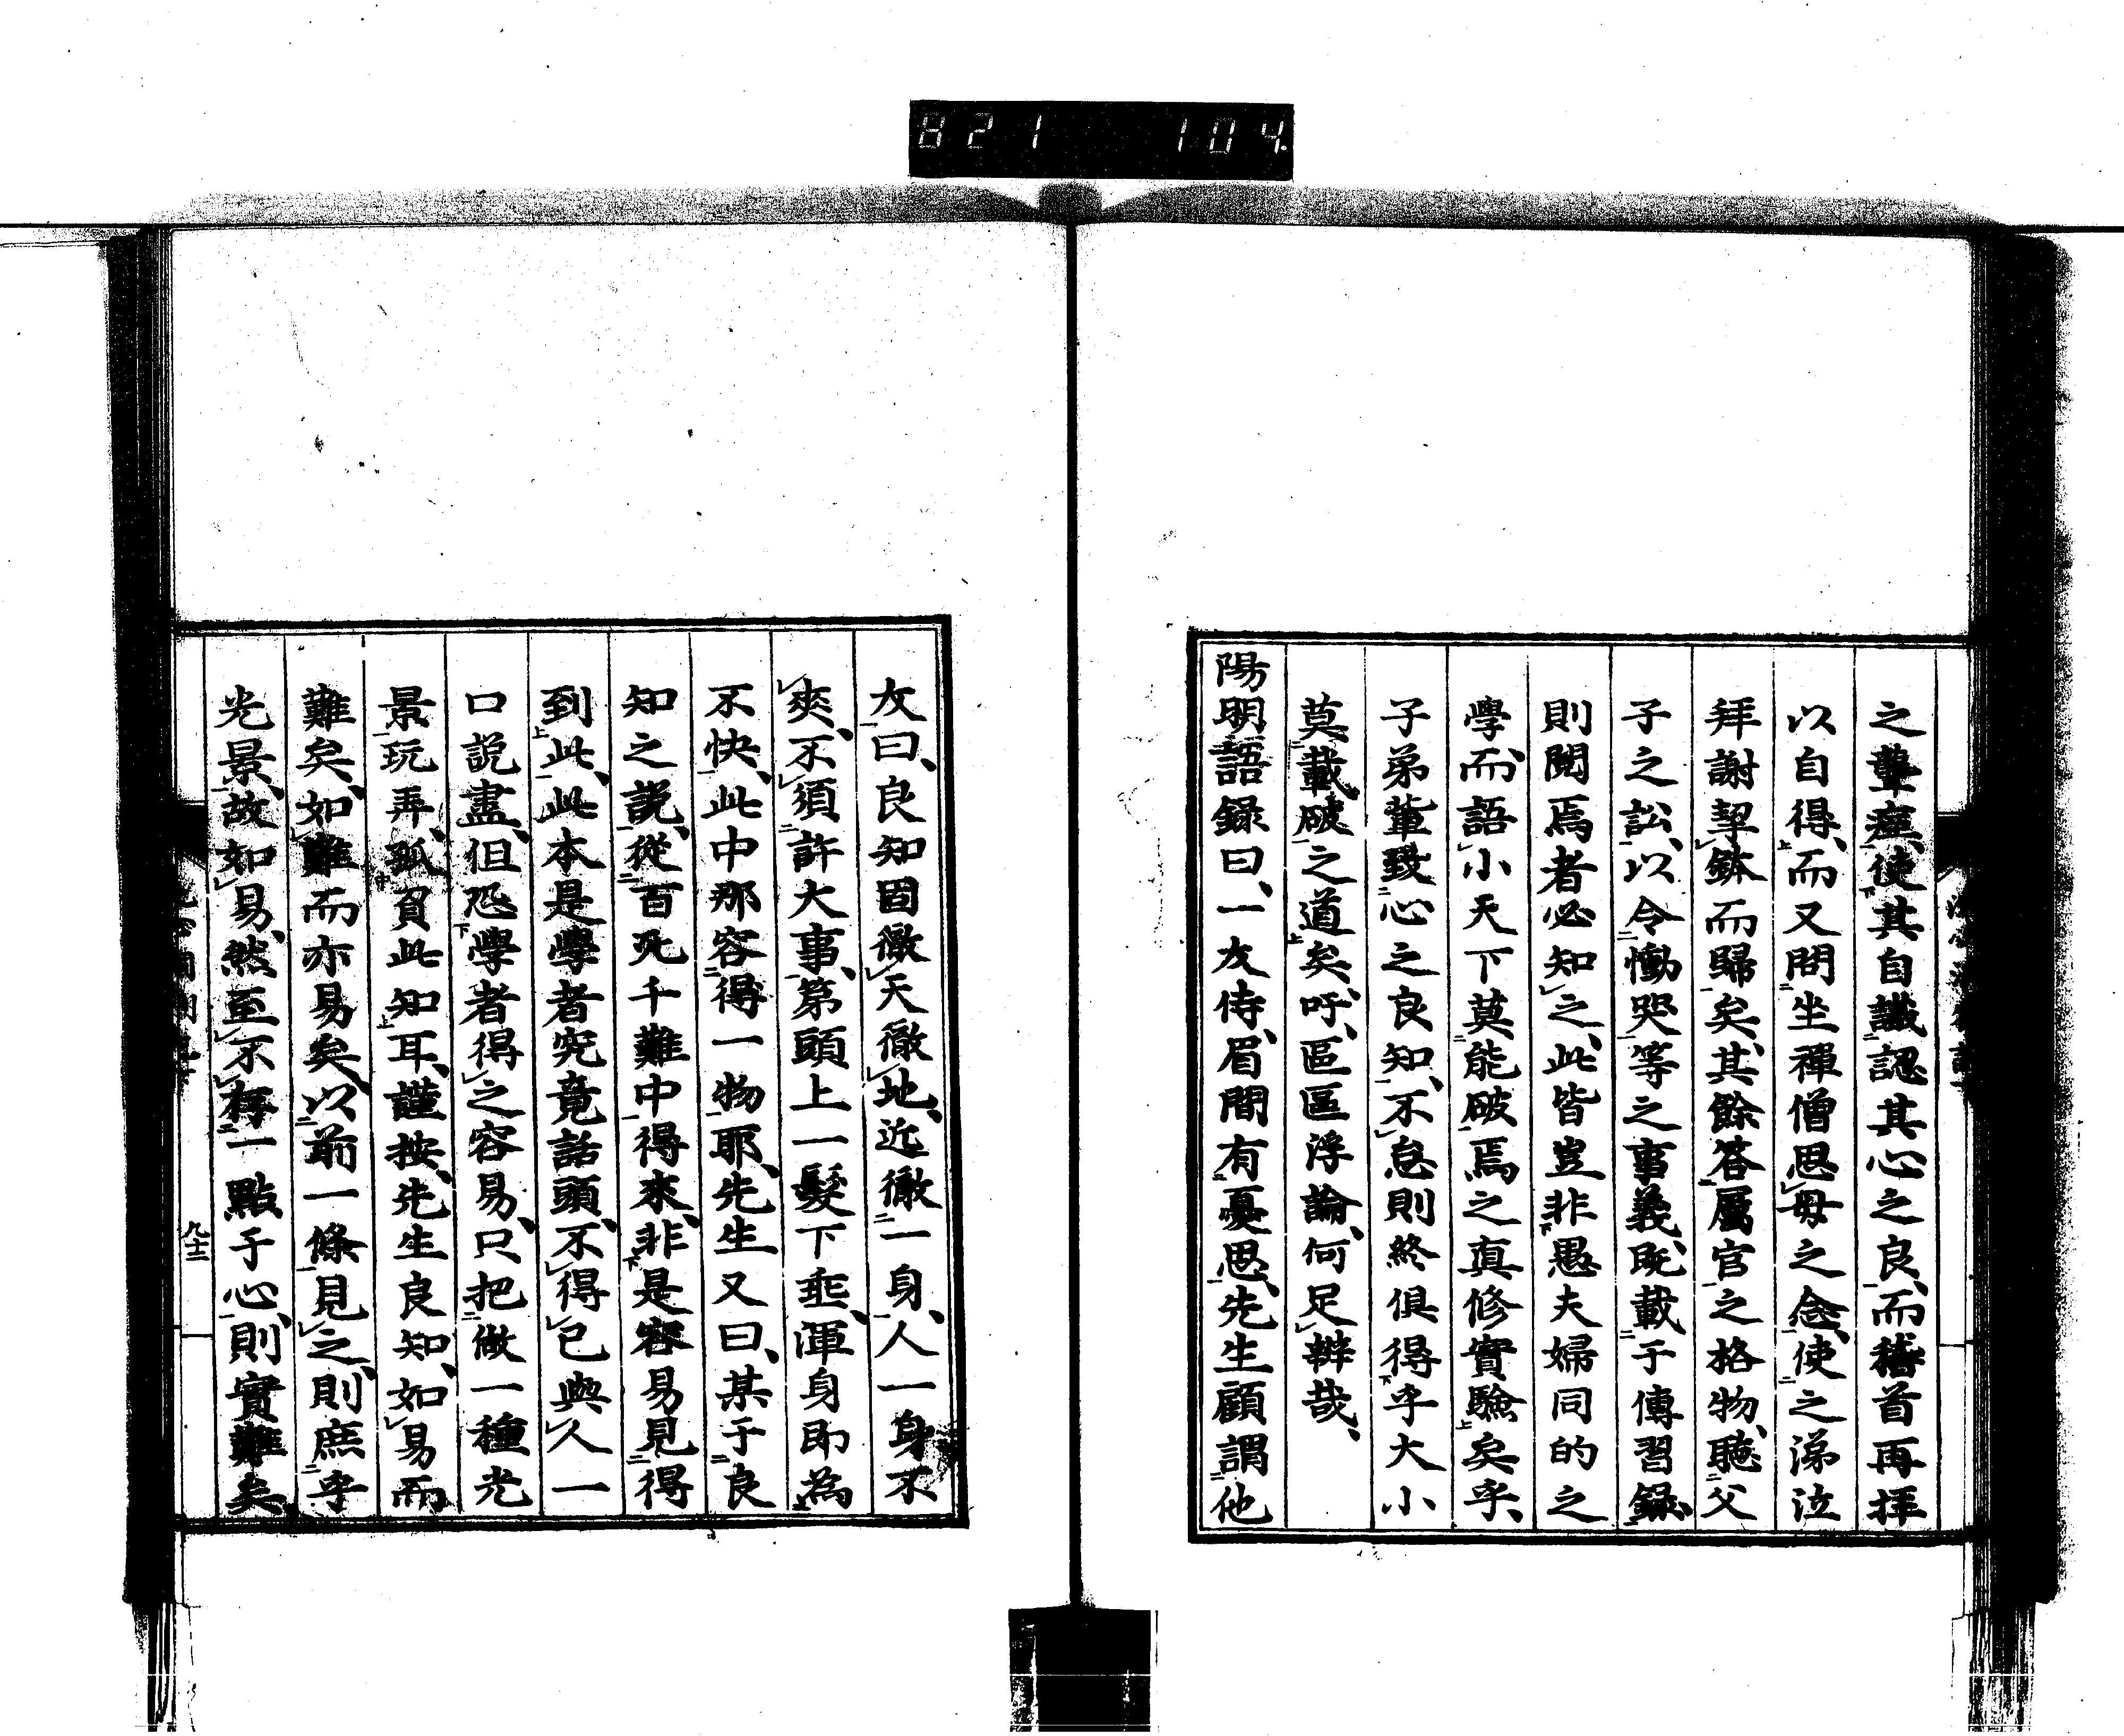 821 104
之聾瘂、使其自識認其心之良、而稽首再拝
以自得、而又問坐禪僧思母之念、使之涕泣
拜謝挈鉢而歸矣、其餘答屬官之格物、聴父
子之訟、以令慟哭等之事義、既載于傳習録、
則閲焉者必知之、此皆豈非愚夫婦同的之
學、而語小天下莫能破焉之真修實驗矣乎、
子弟輩致心之良知、不怠則終倶得乎大小
莫載破之道矣、吁、區區浮論、何足辨哉、
陽明語録曰、一友侍、眉間有憂思、先生顧謂他
友曰、良知固徹天徹地、近徹一身、人一身不
爽、不須許大事、第頭上一髮下垂、渾身即為
不快、此中那容得一物耶、先生又曰、某于良
知之説、從百死千難中得來、非是容易見得
到此、此本是學者究竟話頭、不得已與人一
口説盡、但恐學者得之容易、只把做一種光
景玩弄、孤負此知耳、謹按、先生良知、如易而
難矣、如難而亦易矣、以前一條見之、則庶乎
光景、故如易、然至不存一點于心、則實難矣、
九十二